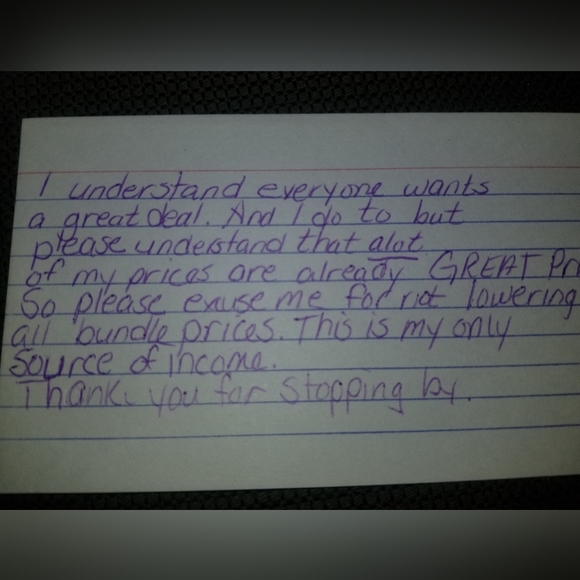 I understand everyone wants
a great deal. And I do to but
please understand that alot
of my prices are already GREAT Pri
So please exuse me for not lowering
all bundle prices. This is my only
Source of income.
Thank you for stopping by.